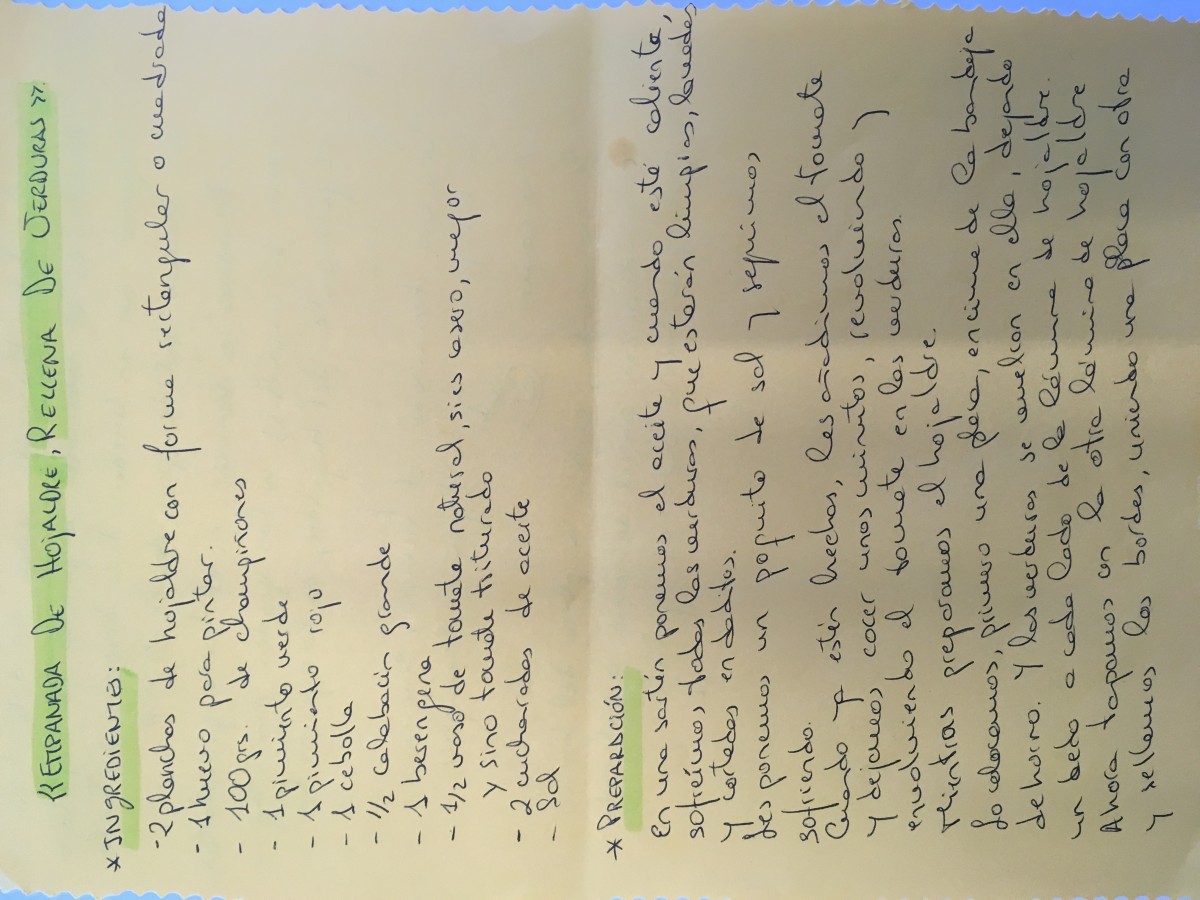 *EMPANADA DE HOJALDRE, RELLENA DE VERDURAS».
* INGREDIENTES:
- 2 planchas de hojaldre con forma rectangular o cuadrada
- 1 huevo para pintar.
- 100 grs. de champiñones
- 1 pimiento verde
- 1 pimiento rojo
- 1 cebolla
- 1/2 calabacín grande
- 1 berengena
- 1/2 vaso de tomate natural, si es casero, mejor
y sino tomate triturado
- 2 cucharadas de aceite
- Sal
* PREPARACIÓN:
En una sartén ponemos el aceite y cuando esté caliente,
sofreímos todas las verduras, que estarán limpias, lavadas
y cortadas en daditos.
Les ponemos un poquito de sal y seguimos
sofriendo.
Cuando ya estén hechas, les añadimos el tomate
y dejamos cocer unos minutos, revolviendo y
envolviendo el tomate en las verduras.
Mientras preparamos el hojaldre.
Lo colocamos, primero una placa, encima de la bandeja
de horno. Y las verduras se vuelcan en ella, dejando
un dedo a cada lado de la lámina de hojaldre.
Ahora tapamos con la otra lámina de hojaldre
y sellamos los bordes, uniendo una placa con otra